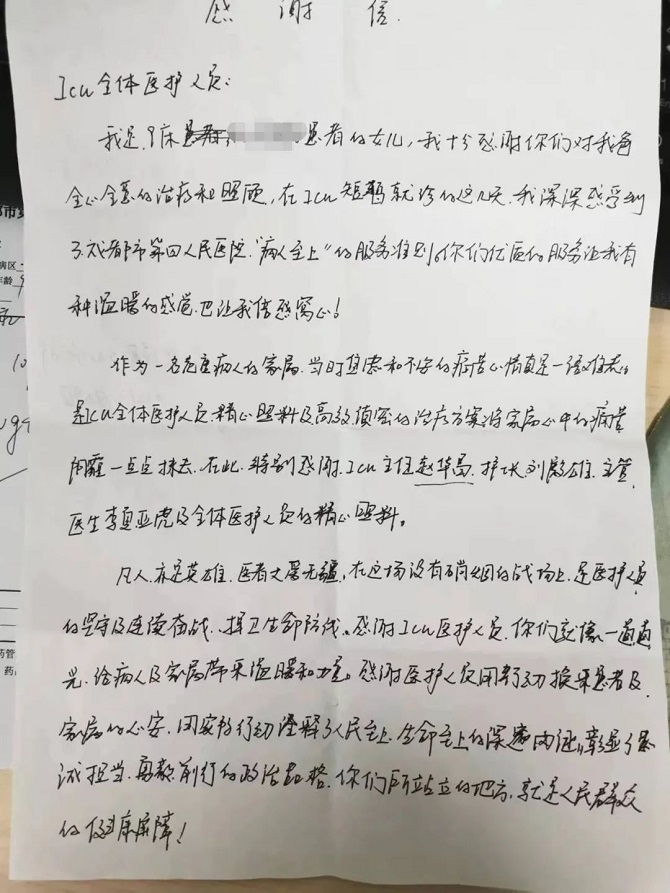 感谢信
Icu全体医护人员:
我是9床患者的女儿,我十分感谢你们对我爸
全心全意的治疗和照顾,在Icu短暂就诊的这几天,我深深感受到
了成都市第四人民医院"病人至上"的服务准则,你们优质的服务让我有
种温暖的感觉,也让我倍感窝心!
作为一名危重病人的家属,当时焦虑和不安的痛苦心情真是一语难表。
是Icu全体医护人员精心照料及高效缜密的治疗方案将家属心中的痛苦
阴霾一点点抹去,在此,特别感谢Icu主任赵华昌,护士长刘雄,主管
医生李亚虎及全体医护人员的精心照料。
凡人亦是英雄,医者大爱无疆,在这场没有硝烟的战场上,是医护人员
的坚守及连续奋战,捍卫生命防线。感谢Icu医护人员,你们就像一道道
光,给病人及家属带来温暖和力量。感谢医护人员用行动换来患者及
家属的心安,用实际行动诠释了人民至上,生命至上的深邃内涵,彰显了忠
诚担当,勇毅前行的政治品格,你们所站立的地方,就是人民群众
的健康屏障!
病区
年龄
药管